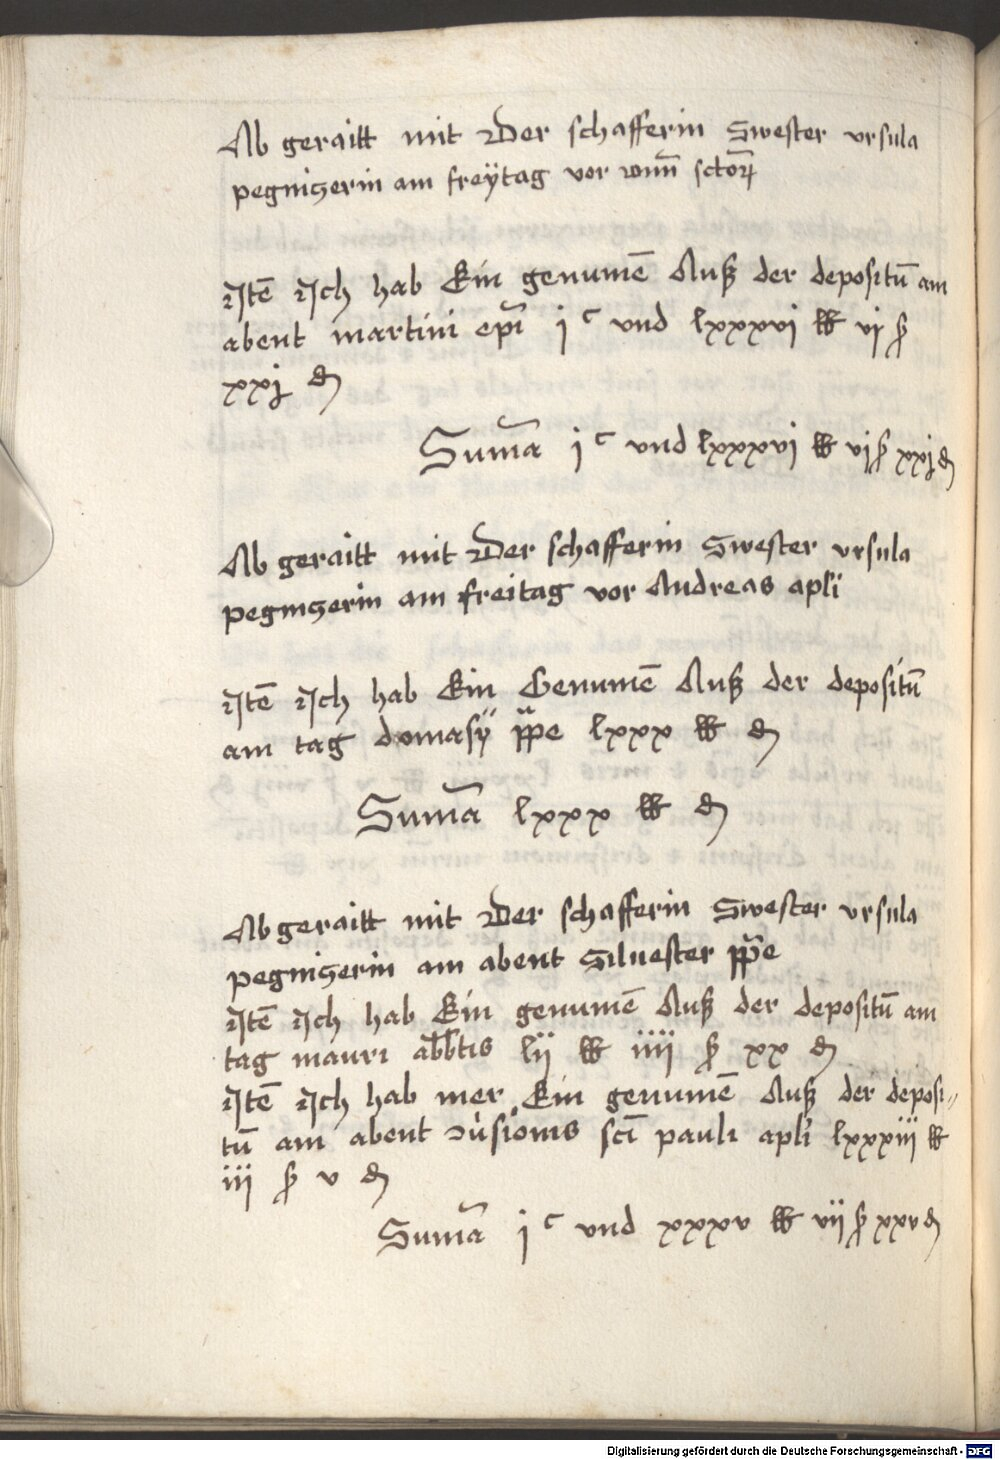 Ab geraitt mit Der schafferin Swester vrsula
pegniczerin am freÿtag vor omniū sctorꝝ
Jtē Jch hab Ein genumē Auß der depositū am
abent martini epī j c vnd lxxxvj ℔ vj ß
xxj ₰
Sum̄a j c vnd lxxxvj ℔ vj ß xxj ₰
Ab geraitt mit Der schafferin Swester vrsula
pegniczerin am freitag vor Andreas apli
Jtē Jch hab Ein Genumē Auß der depositū
am tag domasÿ ꝑꝑe lxxx ℔ ₰
Sum̄a lxxx ℔ ₰
Ab geraitt mit Der schafferin Swester vrsula
pegniczerin am abent Siluester ꝑꝑe
Jtē Jch hab Ein genumē Auß der depositū am
tag mauri abb̄tis lij ℔ iiij ß xx ₰
Jtē Jch hab mer Ein genumē Auß der deposi„
tū am abent sci pauli apli lxxxiij ℔
iij ß v ₰
Sum̄a j c vnd xxxv ℔ vij ß xxv ₰
Digitalisierung gefördert durch die Deutsche Forschungsgemeinschaft - DFG